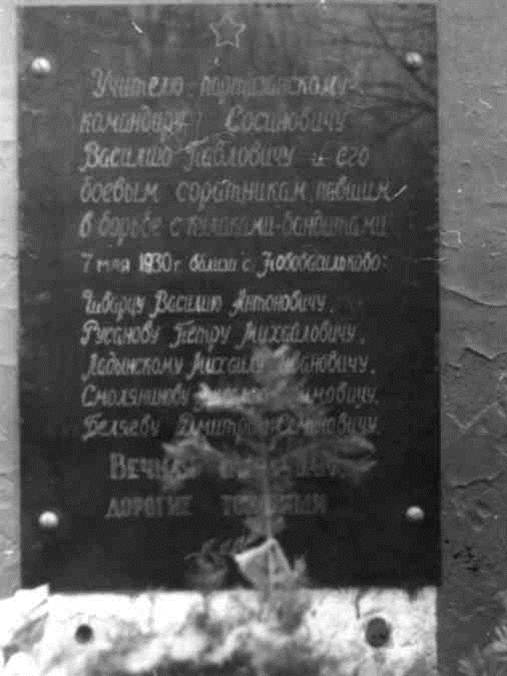 Учителю партизанскому
командиру Сосиновичу
Василию Павловичу и его
боевым соратникам, павшим
в борьбе с кулаками-бандитами
7 мая 1930 г. близи с.
Шварцу Василию Антоновичу,
Русанову Петру Михайловичу,
Ладынскому Михаилу Ивановичу,
Смолянинову
Беляеву Дмитрию Семёновичу
Вечная
дорогие товарищи